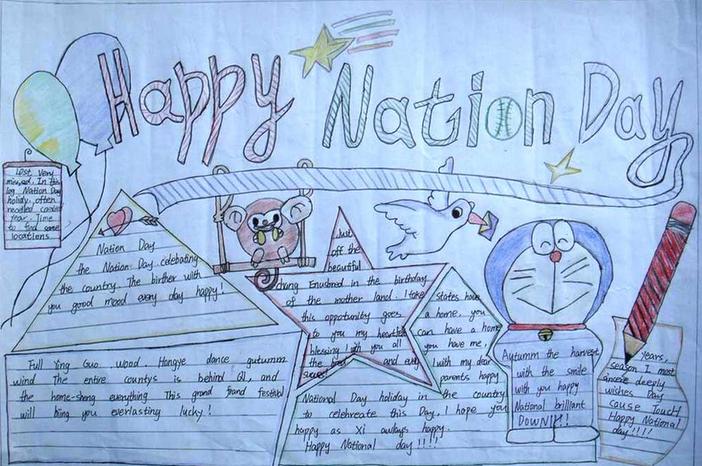 Happy Nation Day
Lost very
missed. In the
log Nation Day
holidy, often
recalled
fear. Time
to find some
locations
Nation Day
the Nation Day celebrating
the country. The birther with
you good mood every day happy!
Just
off the
beautiful
chang Enusbred in the birthday
of the mother land. I take
this opportunity goes
to you my heartfelt
blessing I with you all
the best and every
success
States have
a home. you
can have a home
you have me,
I with my dear
parents happy
Full Ying Guo wood. Hongye dance gutumm
wind The entire countys is behind QL, and
the home-shang everything This grand frand festibal
will bing you everlasting lucky!
National Day holiday in the country
to celebreate this Day. I hope you
happy as Xi aulways happy.
Happy National day!!!!
Autymm the harvest
with the smile
with you happy
National brilliant
DOWN!!!
Years,
season I most
sincere deeply
wishes Day
cause Touch
Happy National
day!!!!